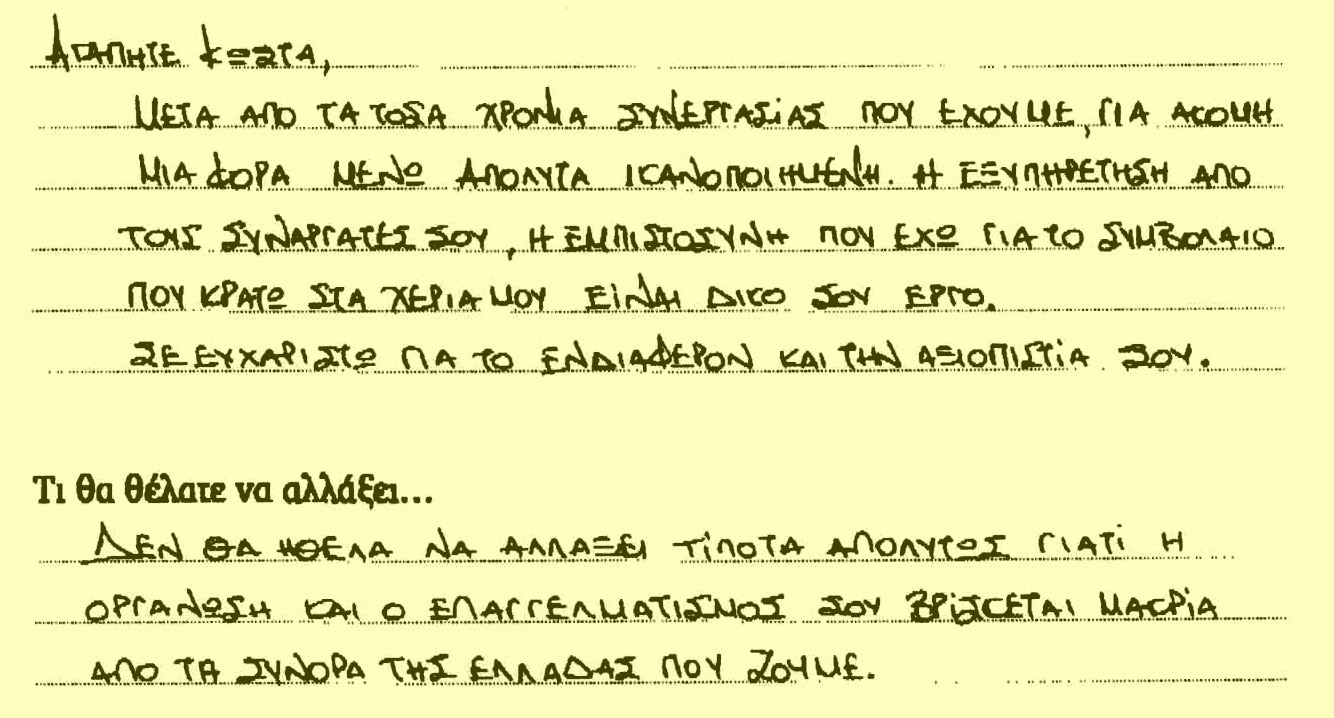 ΑΓΑΠΗΤΕ ΚΩΣΤΑ,
ΜΕΤΑ ΑΠΟ ΤΑ ΤΟΣΑ ΧΡΟΝΙΑ ΣΥΝΕΡΓΑΣΙΑΣ ΠΟΥ ΕΧΟΥΜΕ, ΓΙΑ ΑΚΟΜΗ
ΜΙΑ ΦΟΡΑ ΜΕΝΩ ΑΠΟΛΥΤΑ ΙΚΑΝΟΠΟΙΗΜΕΝΗ. Η ΕΞΥΠΗΡΕΤΗΣΗ ΑΠΟ
ΤΟΥΣ ΣΥΝΑΡΓΑΤΕΣ ΣΟΥ, Η ΕΜΠΙΣΤΟΣΥΝΗ ΠΟΥ ΕΧΩ ΓΙΑ ΤΟ ΣΥΜΒΟΛΑΙΟ
ΠΟΥ ΚΡΑΤΩ ΣΤΑ ΧΕΡΙΑ ΜΟΥ ΕΙΝΑΙ ΔΙΚΟ ΣΟΥ ΕΡΓΟ.
ΣΕ ΕΥΧΑΡΙΣΤΩ ΓΙΑ ΤΟ ΕΝΔΙΑΦΕΡΟΝ ΚΑΙ ΤΗΝ ΑΞΙΟΠΙΣΤΙΑ ΣΟΥ.
Τι θα θέλατε να αλλάξει...
ΔΕΝ ΘΑ ΗΘΕΛΑ ΝΑ ΑΛΛΑΞΕΙ ΤΙΠΟΤΑ ΑΠΟΛΥΤΩΣ ΓΙΑΤΙ Η
ΟΡΓΑΝΩΣΗ ΚΑΙ Ο ΕΠΑΓΓΕΛΜΑΤΙΣΜΟΣ ΣΟΥ ΒΡΙΣΚΕΤΑΙ ΜΑΚΡΙΑ
ΑΠΟ ΤΑ ΣΥΝΟΡΑ ΤΗΣ ΕΛΛΑΔΑΣ ΠΟΥ ΖΟΥΜΕ.